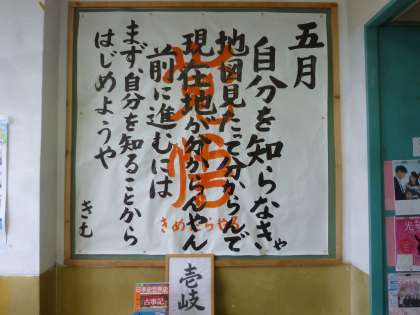 五月
自分を知らなきゃ
地図見たって分からんで
現在地が分からんやん
前に進むには
まず自分を知ることから
はじめようや
きむ
覚悟
きめたらやる
壱岐
古事記